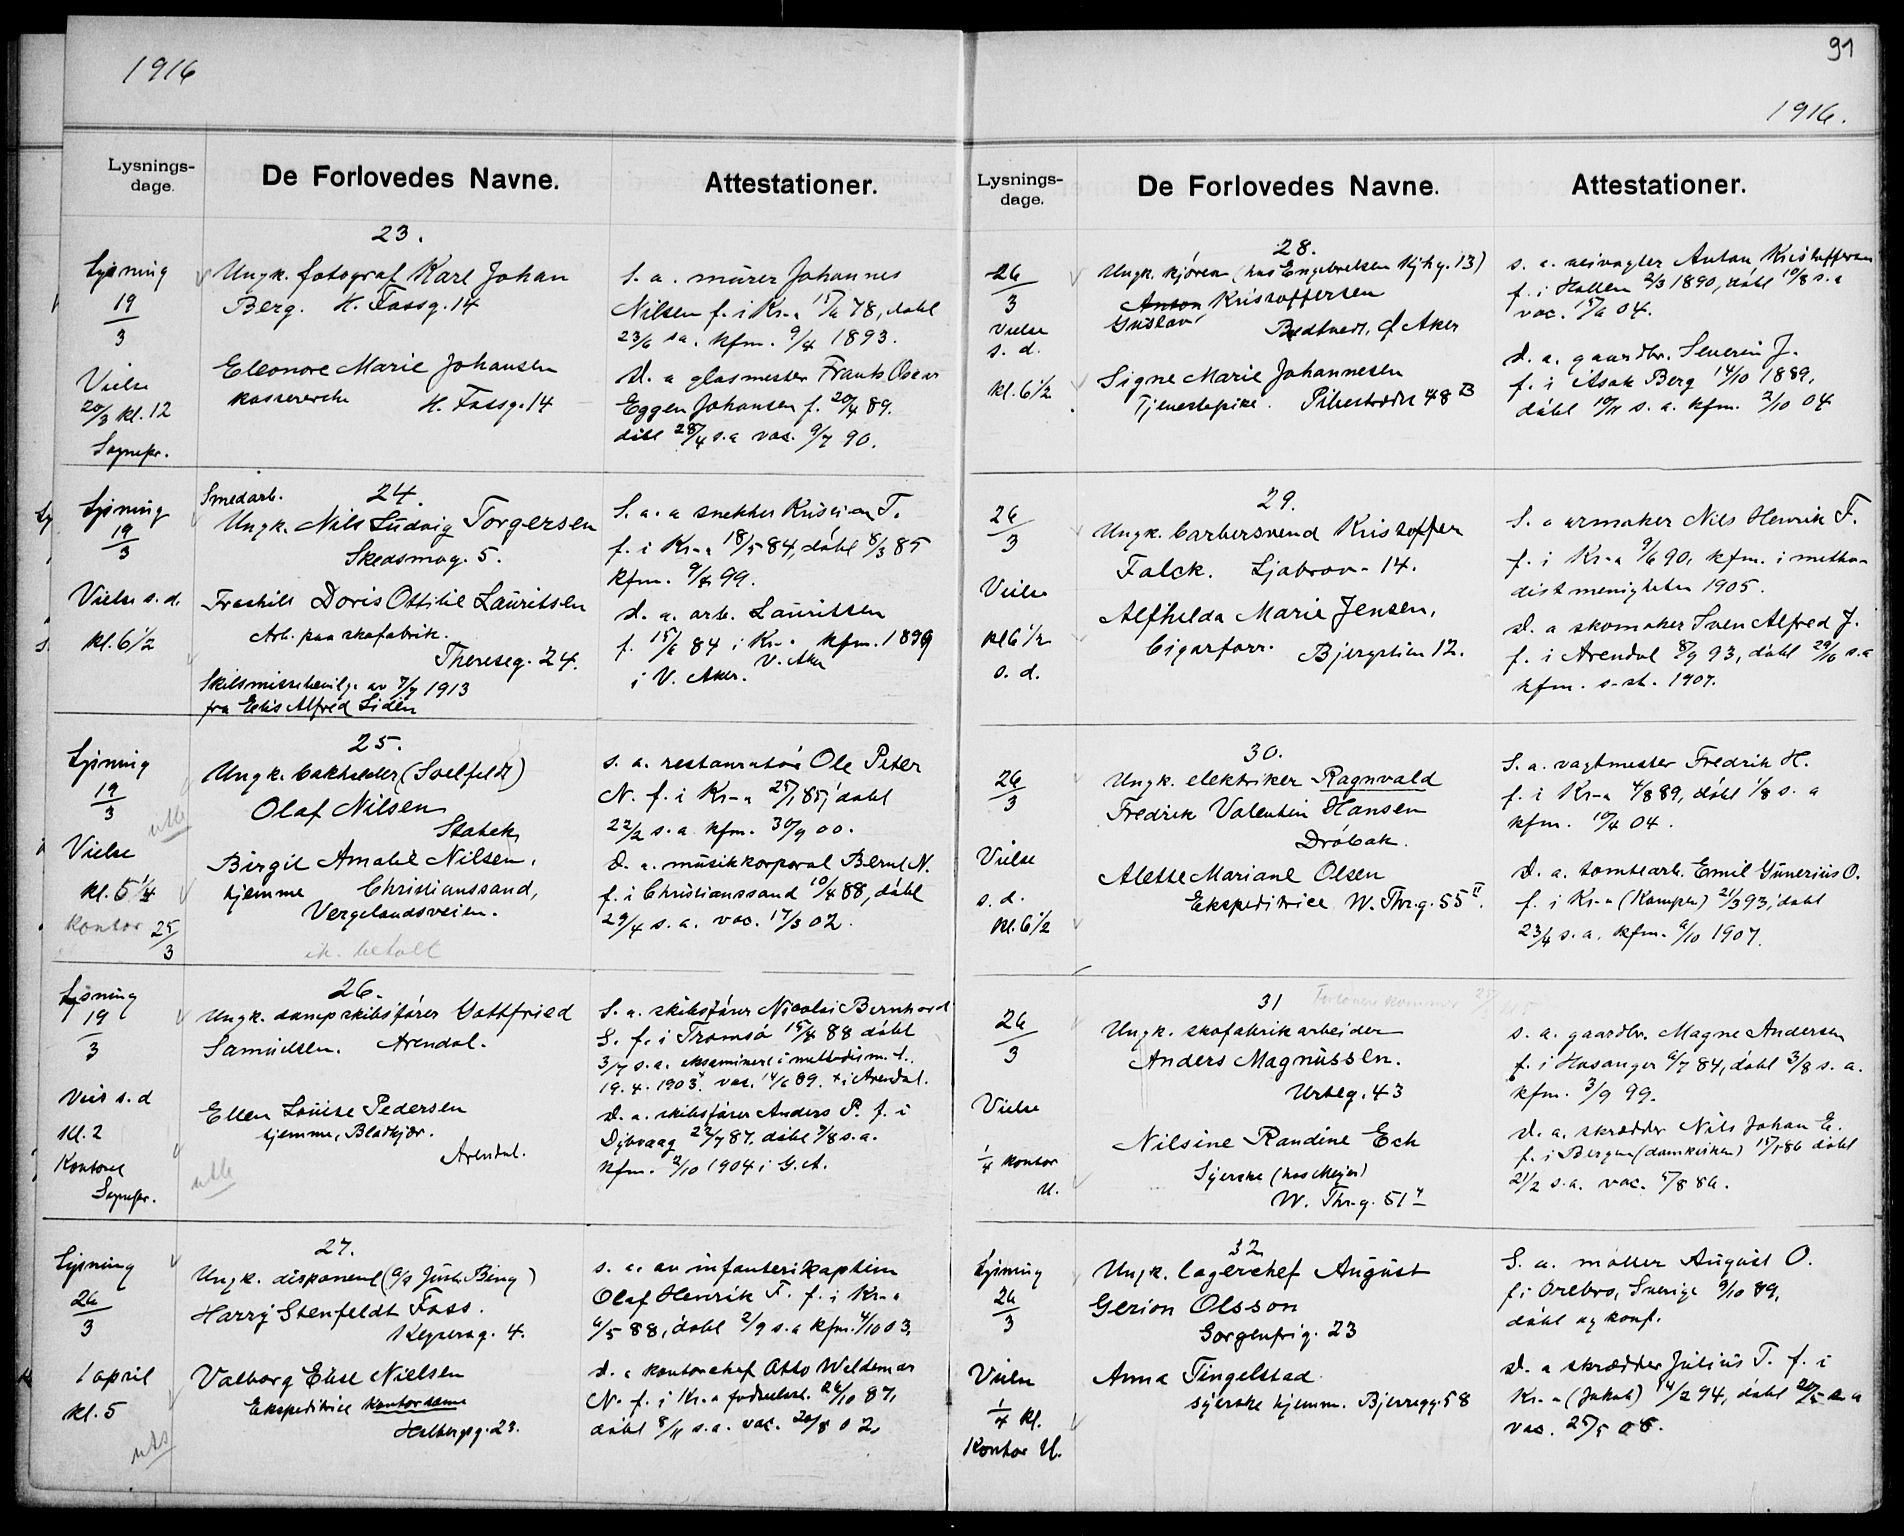 1916
Lysnings-
dage.
De Forlovedes Navne.
Attestationer.
23.
Lysning
19
3
Vielse
20/3 kl. 12
Sognepr.
Ungk. fotograf Karl Johan
Berg. H. Fossg. 14
Eleonore Marie Johansen
H. Fossg. 14
S. a. murer Johannes
Nilsen f. i Kr-a 78, døbt
23/6 s.a. kfm. 9/4 1893.
D. a glasmester Frants Oscar
Eggen Johansen f. 20/4 89.
døbt 28/4 s.a vac. 9/7 90.
24.
Lysning
19
3
Vielse s. d.
kl. 6 1/2
Smedarb.
Ungk. Nils Ludvig Torgersen
Skedsmog. 5.
Fraskilt Doris Ottilie Lauritsen
Arb. paa skofabrik.
Thereseg. 24.
Skilsmissebevilg. av 7/7 1913
fra Alfred Liden
S. a. a snekker Kristian T.
f. i Kr-a 18/5 84, døbt 8/3 85
kfm. 99.
D. a. arb. Lauritsen
f. 15/6 84 i Kr-a kfm. 1899
i V. Aker. V. Aker
25.
Lysning
19
3
Vielse
kl. 5 1/4
kontor 25
3
Ungk. (Soelfeldt)
Olaf Nilsen
Stabek
Birgit Amalie Nilsen.
hjemme Christianssand,
Vergelandsveien.
betalt
S. a. restauratør Ole Peter
N. f. i Kr-a 25/1 85, døbt
22/2 s.a. kfm. 30/9 00.
D. a. musikkorporal Bernt N.
f. i Christianssand 10/4 88, døbt
29/4 s. a. vac. 17/3 02.
26.
Lysning
19
3
Viet s. d
kl. 2
Kontoret
Sognepr.
Ungk. dampskibsfører Gottfried
Samuelsen. Arendal.
Ellen Louise Pedersen
hjemme, Bladkjær.
Arendal.
S. a. skibsfører Nicolai Bernhard
S. f. i Tromsø 15/4 88 døbt
3/7 s.a. eksaminert i methodism. t.
19. 4. 1903 + vac. 14/6 89. + i Arendal.
D. a. skibsfører Anders P. f. i
Dybvaag 22/7 87. døbt 7/8 s.a.
kfm. 2/10 1904 i G. A.
27.
Lysning
26
3
1 april
kl. 5
Ungk. disponent (A/s Just. Bing)
Harry Stenfeldt Foss.
Keysersg. 4.
Valborg Elise Nielsen
Ekspeditrice kontordame
Holbergsg. 23.
S. a. av infanterikaptein
Olaf Henrik F. f. i Kr-a
6/5 88, døbt 2/9 s.a kfm. 4/10 03,
D. a kontorchef Otto Weldemar
N. f. i Kr.a fødselsst. 26/10 87,
døbt 8/11 s.a. vac. 20/8 02.
91
1916.
Lysnings-
dage.
De Forlovedes Navne.
Attestationer.
28.
26
3
Vielse
s. d.
kl. 6 1/2
Ungk. kjører (hos Engebretsen 13)
Anton Kristoffersen
Gustav
Ø Aker
Signe Marie Johannesen
Tjenestepike. Pilestrædet 48 B
S. a. Anton Kristoffersen
f. i Hallen 2/3 1890, døbt 10/8 s.a
vac. 04.
D. a. gaardbr. Severin J.
f. i Asak Berg 14/10 1889,
døbt 10/11 s. a. kfm. 2/10 04
29.
26
3
Vielse
kl 6 1/2
s. d.
Ungk. barbersvend Kristoffer
Falck. Ljabrov. 14.
Alfhilda Marie Jensen,
Cigarforr. Bjergstien 12.
S. a Nils Henrik F.
f. i Kr-a 9/6 90, kfm. i metho-
distmenigheten 1905.
D. a skomaker Sven Alfred J.
f. i Arendal 8/9 93, døbt 29/10 s.a
kfm. s. st. 1907.
30.
26
3
Vielse
s. d.
kl. 6 1/2
Ungk. elektriker Ragnvald
Fredrik Valentin Hansen
Drøbak.
Alette Mariane Olsen
Ekspeditrice W. Thr.g. 55 II.
S. a. vagtmester Fredrik H.
f. i Kr-a 4/8 89, døbt 1/8 s. a
kfm. 10/4 04.
D. a. tomtearb. Emil Gunerius O.
f. i Kr-a (Kampen) 21/3 93, døbt
23/4 s.a. kfm. 6/10 1907.
31
26
3
Vielse
1/4 kontor
kl.
Ungk. skofabrikarbeider
Anders Magnussen.
Urteg. 43
Nilsine Randine Eck
Syerske (hos Meyer)
W. Thr.g. 51
S. a. gaardbr. Magne Andersen
f. i Hosanger 6/7 84, døbt 3/8 s. a.
kfm. 3/9 99.
D. a. skrædder Nils Johan E.
f. i Bergen (domkirken) 15/1 86 døbt
21/2 s.a. vac. 5/8 86.
32
Lysning
26
3
Vielse
1/4 kl.
Kontor U.
Ungk. lagerchef August
Gerion Olsson
Sorgenfrig. 23
Anna Tingelstad
syerske hjemm. Bjerregg. 58
S. a. møller August O.
f. i Orebro, Sverige 9/10 89,
døbt og konf.
D. a skrædder Julius T. f. i
Kr-a (Jakob) 14/2 94, døbt s a
vac. 25/5 08.